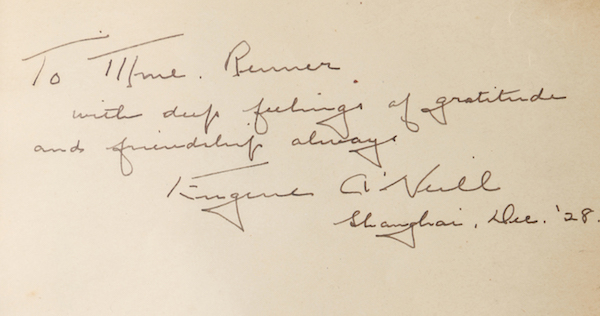 To Mme. Renner.
with deep feelings of gratitude
and friendship always
Eugene O'Neill
Shanghai, Dec. '28.